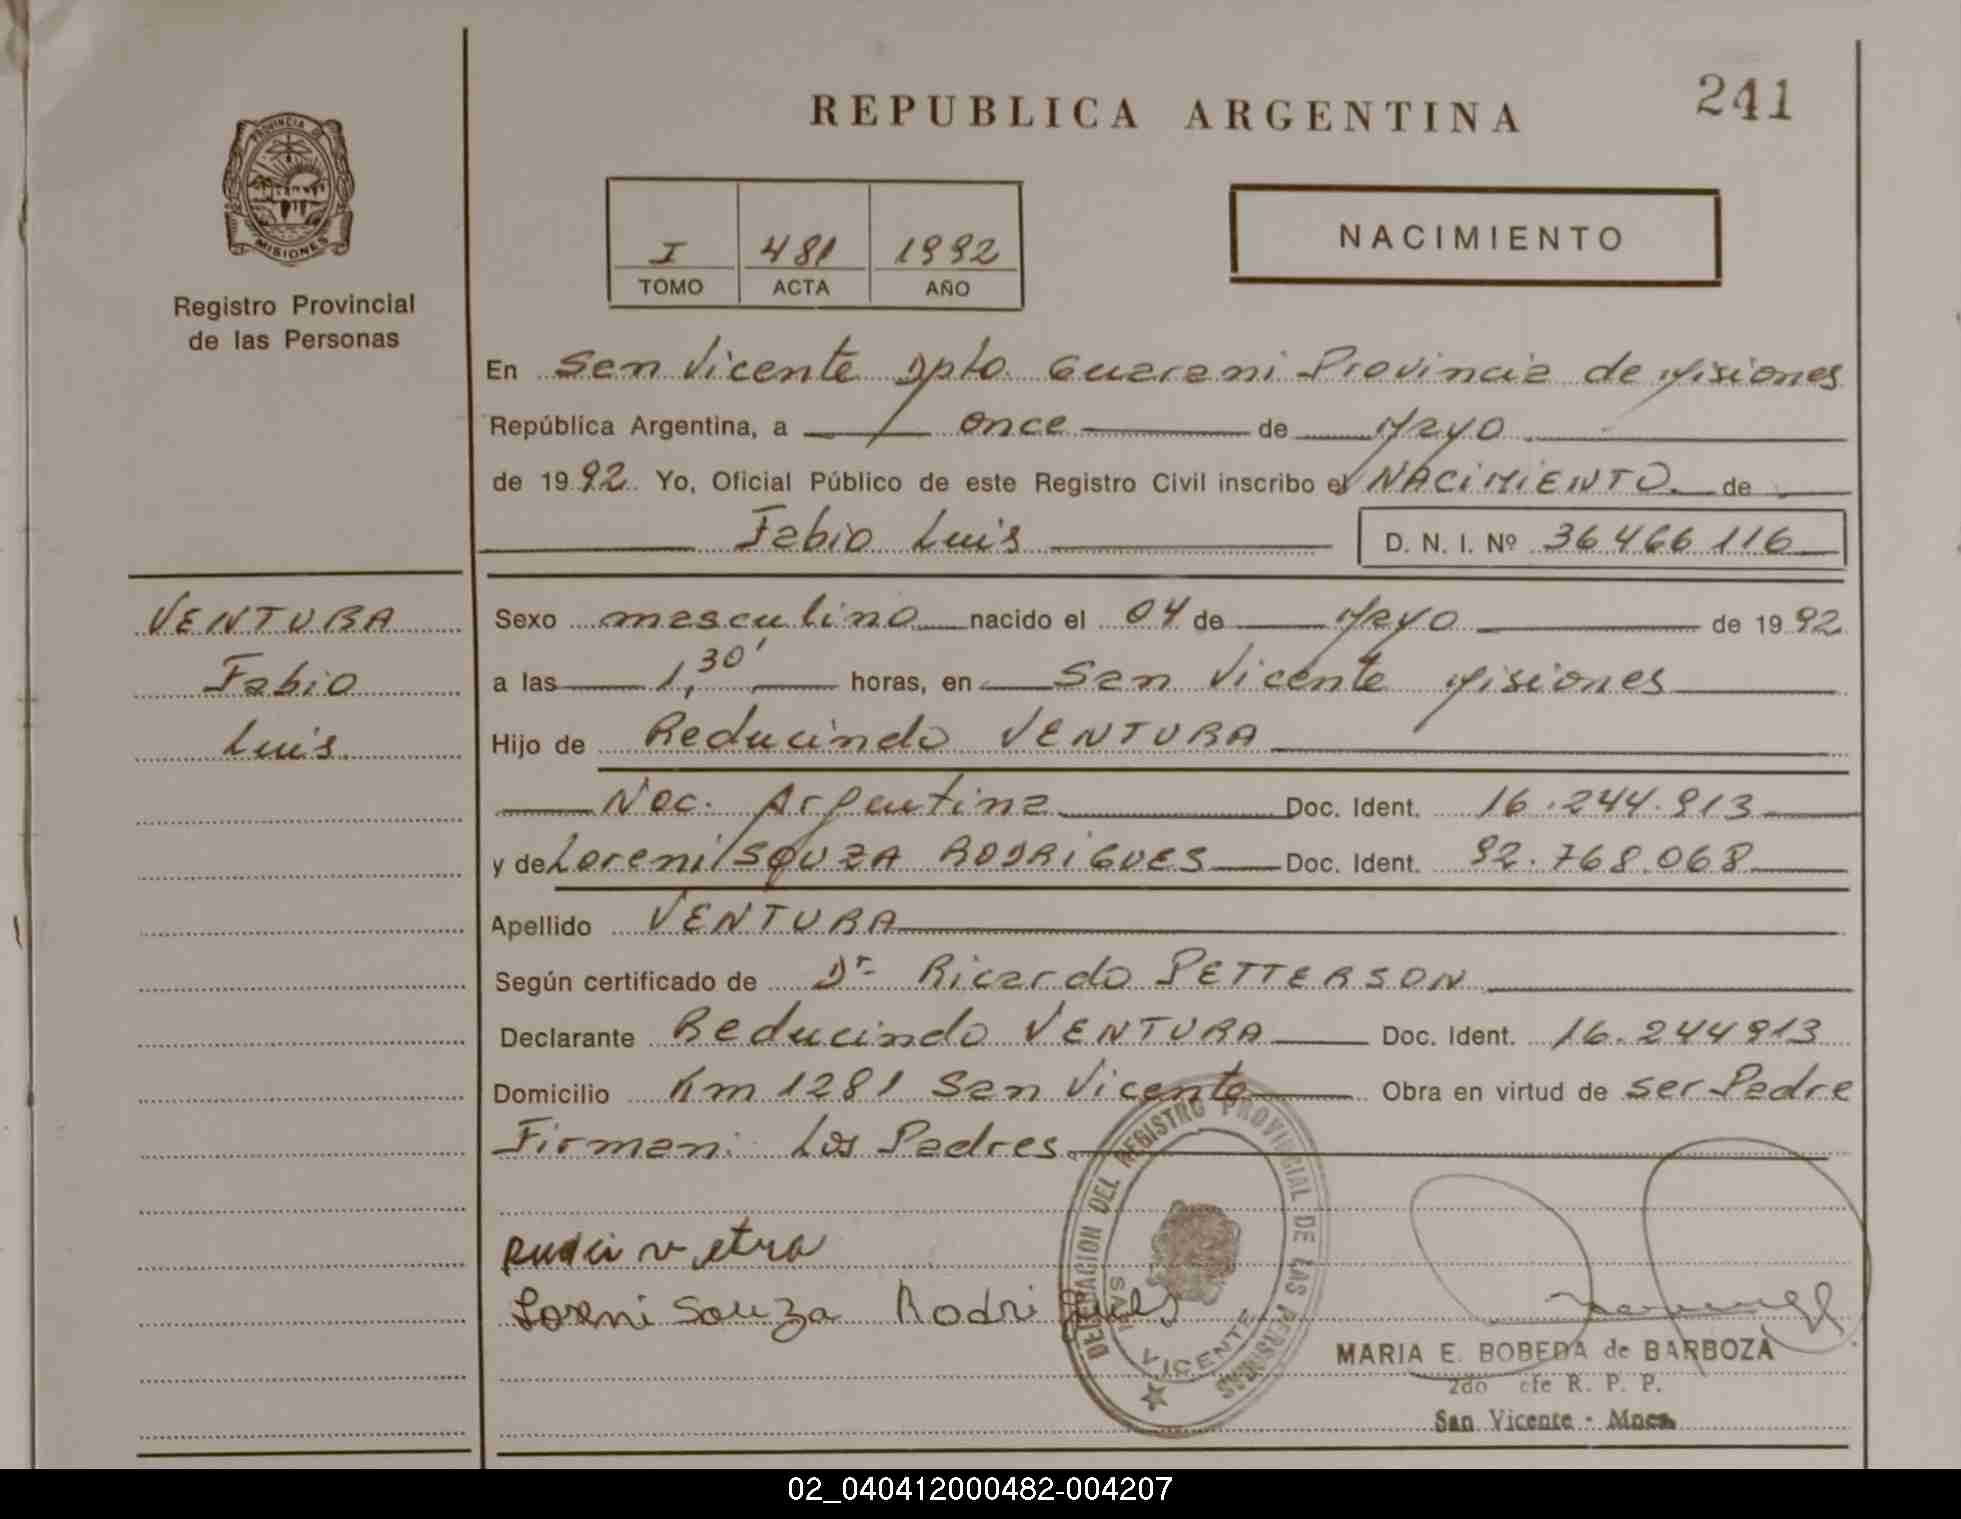 241
REPUBLICA ARGENTINA
PROVINCIA DE
MISIONES
Registro Provincial
de las Personas
I 481 1992
TOMO ACTA AÑO
NACIMIENTO
En San Vicente Dpto. Guarani Provincia de Misiones
República Argentina, a once de Mayo
de 1992. Yo, Oficial Público de este Registro Civil inscribo el NACIMIENTO de
Fabio Luis D. N. I. Nº 36.466.116
VENTURA
Fabio
Luis.
Sexo masculino nacido el 04 de Mayo de 1992
a las 1,30' horas, en San Vicente Misiones
Hijo de Reducindo VENTURA
Nac. Argentina Doc. Ident. 16.244.913
y de Loreni SOUZA RODRIGUES Doc. Ident. 92.768.068
Apellido VENTURA
Según certificado de Dr. Ricardo PETTERSON
Declarante Reducindo VENTURA Doc. Ident. 16.244913
Domicilio Km 1281 San Vicente Obra en virtud de ser Padre
Firman: Los Padres.
Loreni Souza Rodrigues
DELEGACION DEL REGISTRO PROVINCIAL DE LAS PERSONAS
SAN VICENTE
MARIA E. BOBEDA de BARBOZA
2do efe R. P. P.
San Vicente - Mnes.
02_040412000482-004207